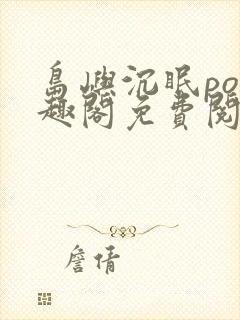 島嶼沉眠po
趣閣免費閱
詹倩